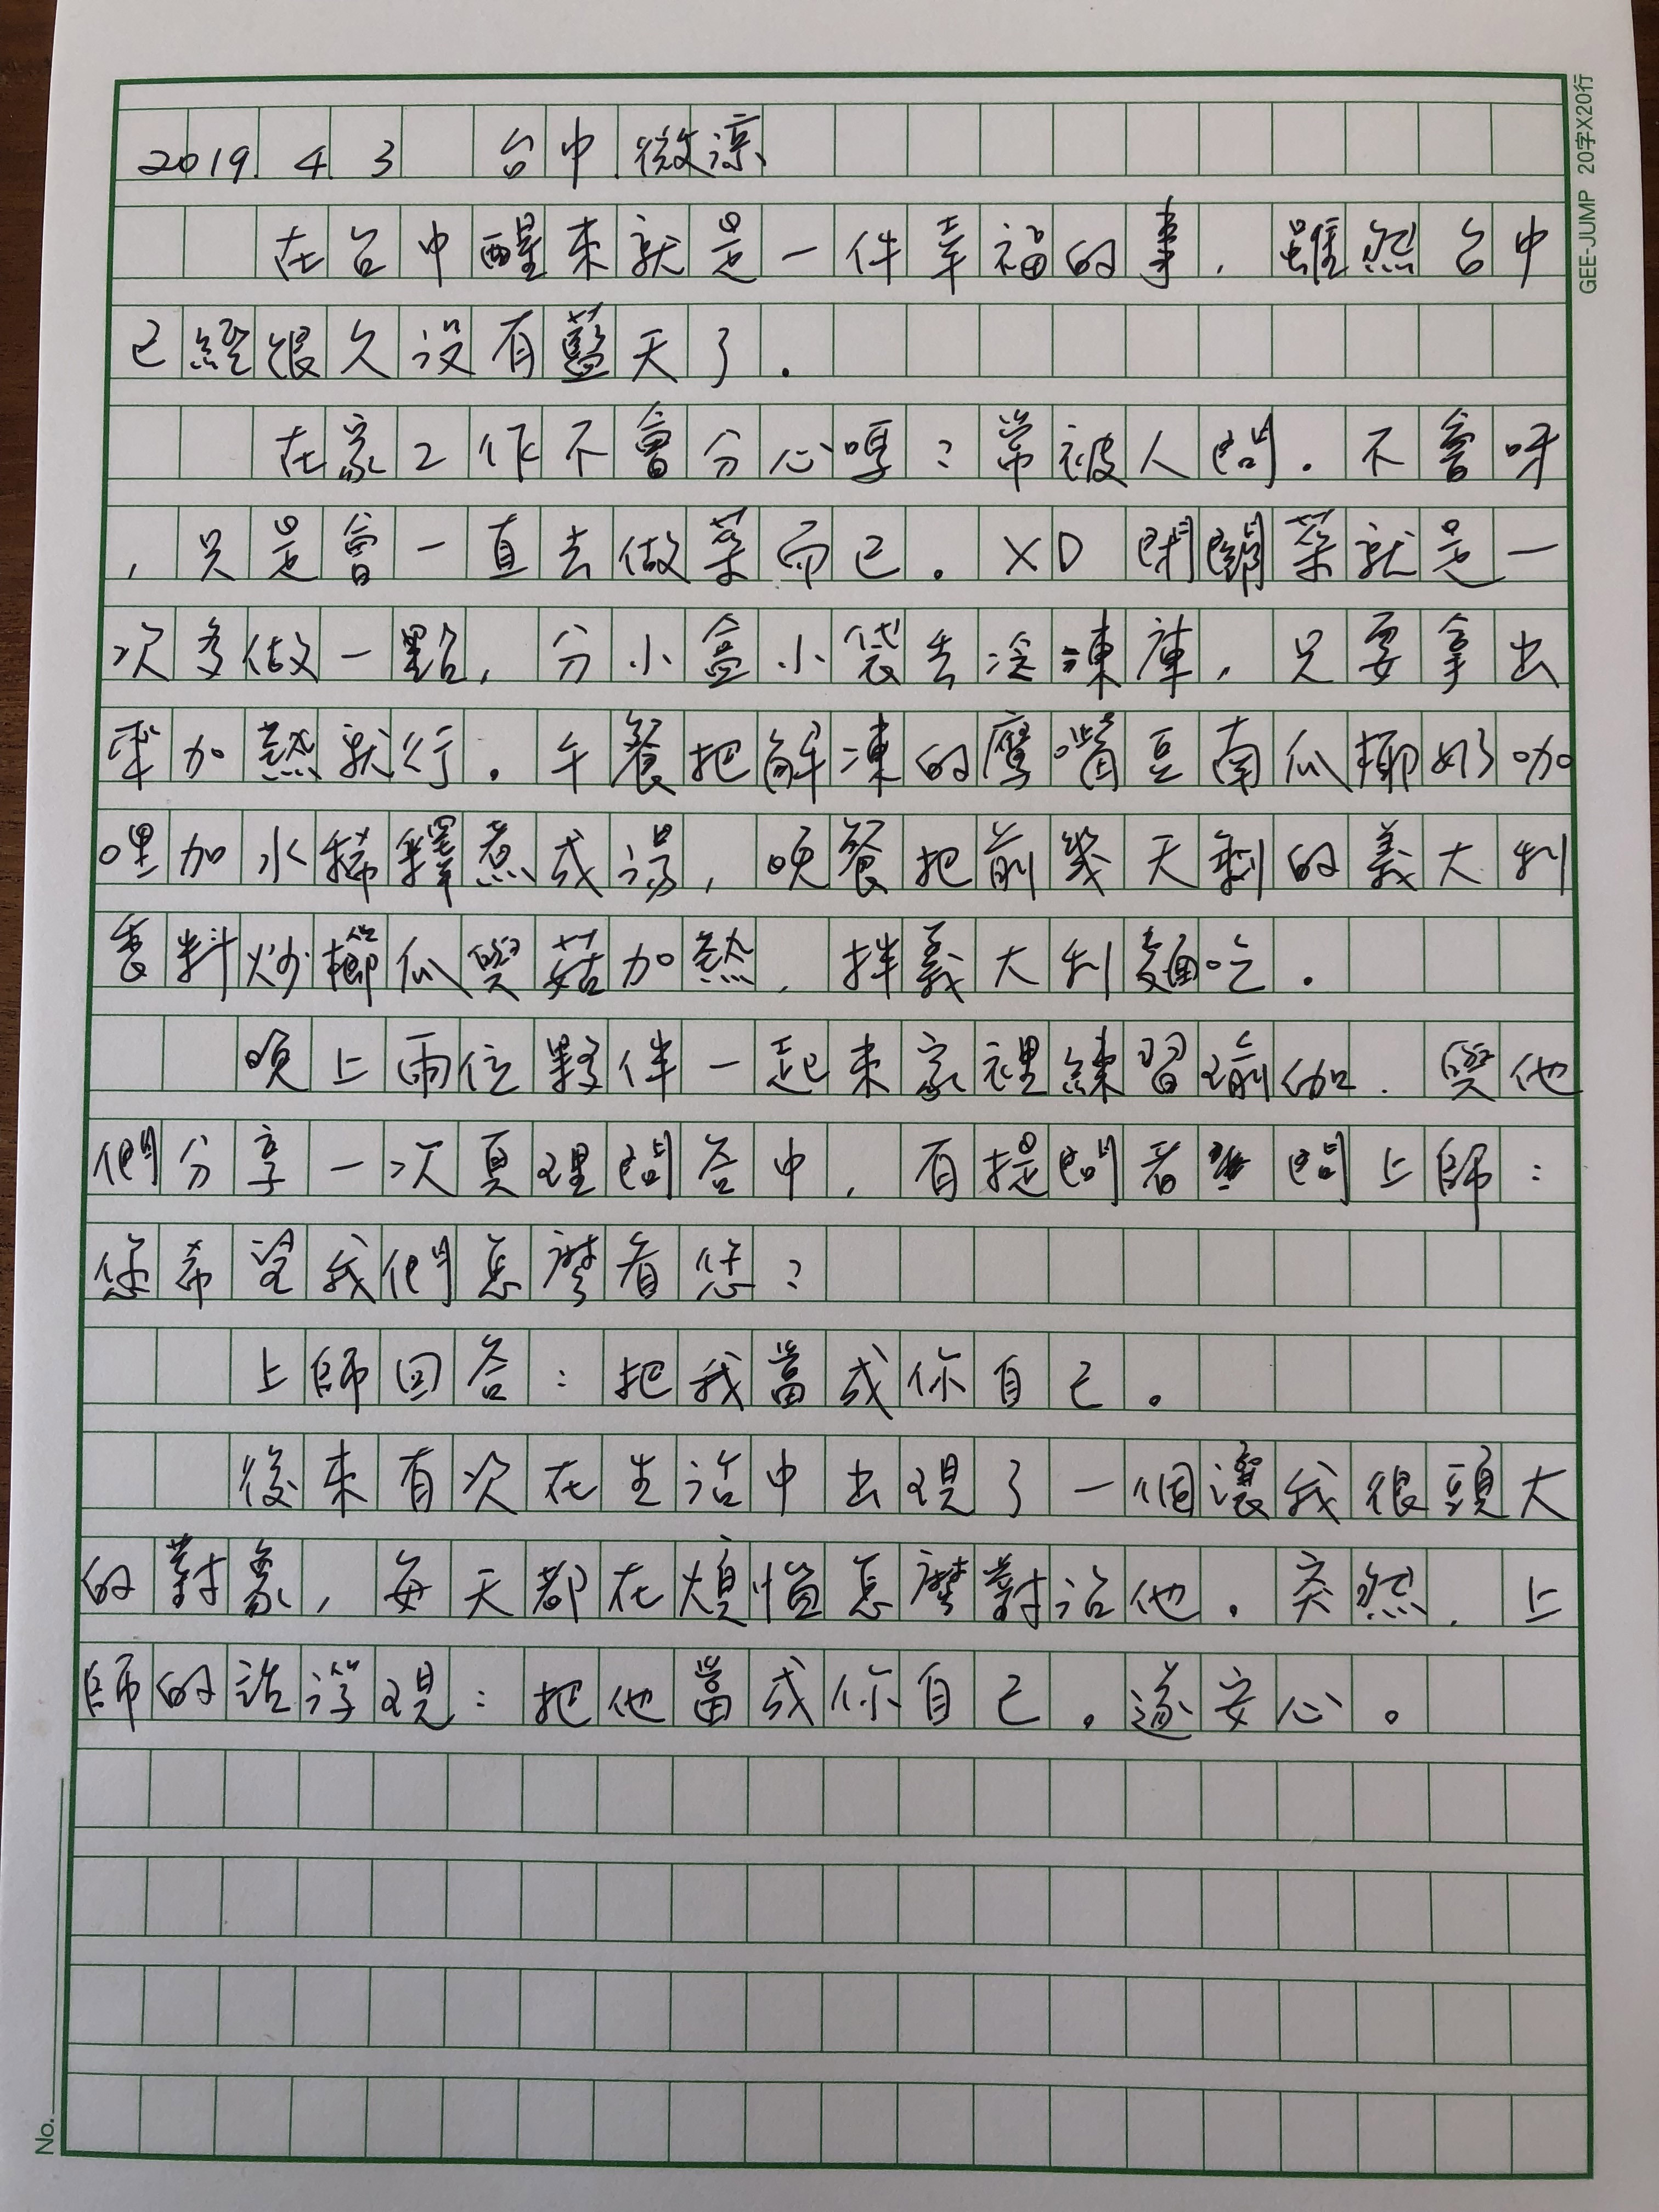 2019. 4. 3 台中 微涼
在台中醒來就是一件幸福的事,雖然台中
已經很久沒有藍天了。
在家工作不會分心嗎?常被人問。不會呀
,只是會一直去做菜而已。XD 開關菜就是一
次多做一點,分小盒小袋去冷凍庫,只要拿出
來加熱就行。午餐把解凍的鷹嘴豆南瓜椰奶咖
哩加水稀釋煮成湯,晚餐把前幾天剩的義大利
香料炒櫛瓜與菇加熱,拌義大利麵吃。
晚上兩位夥伴一起來家裡練習瑜伽。與他
們分享一次真理問答中,有提問者問上師:
您希望我們怎麼看您?
上師回答:把我當成你自己。
後來有次在生活中出現了一個讓我很頭大
的對象,每天都在煩惱怎麼對治他。突然,上
師的話浮現:把他當成你自己。遂安心。
GEE-JUMP 20字X20行
No.